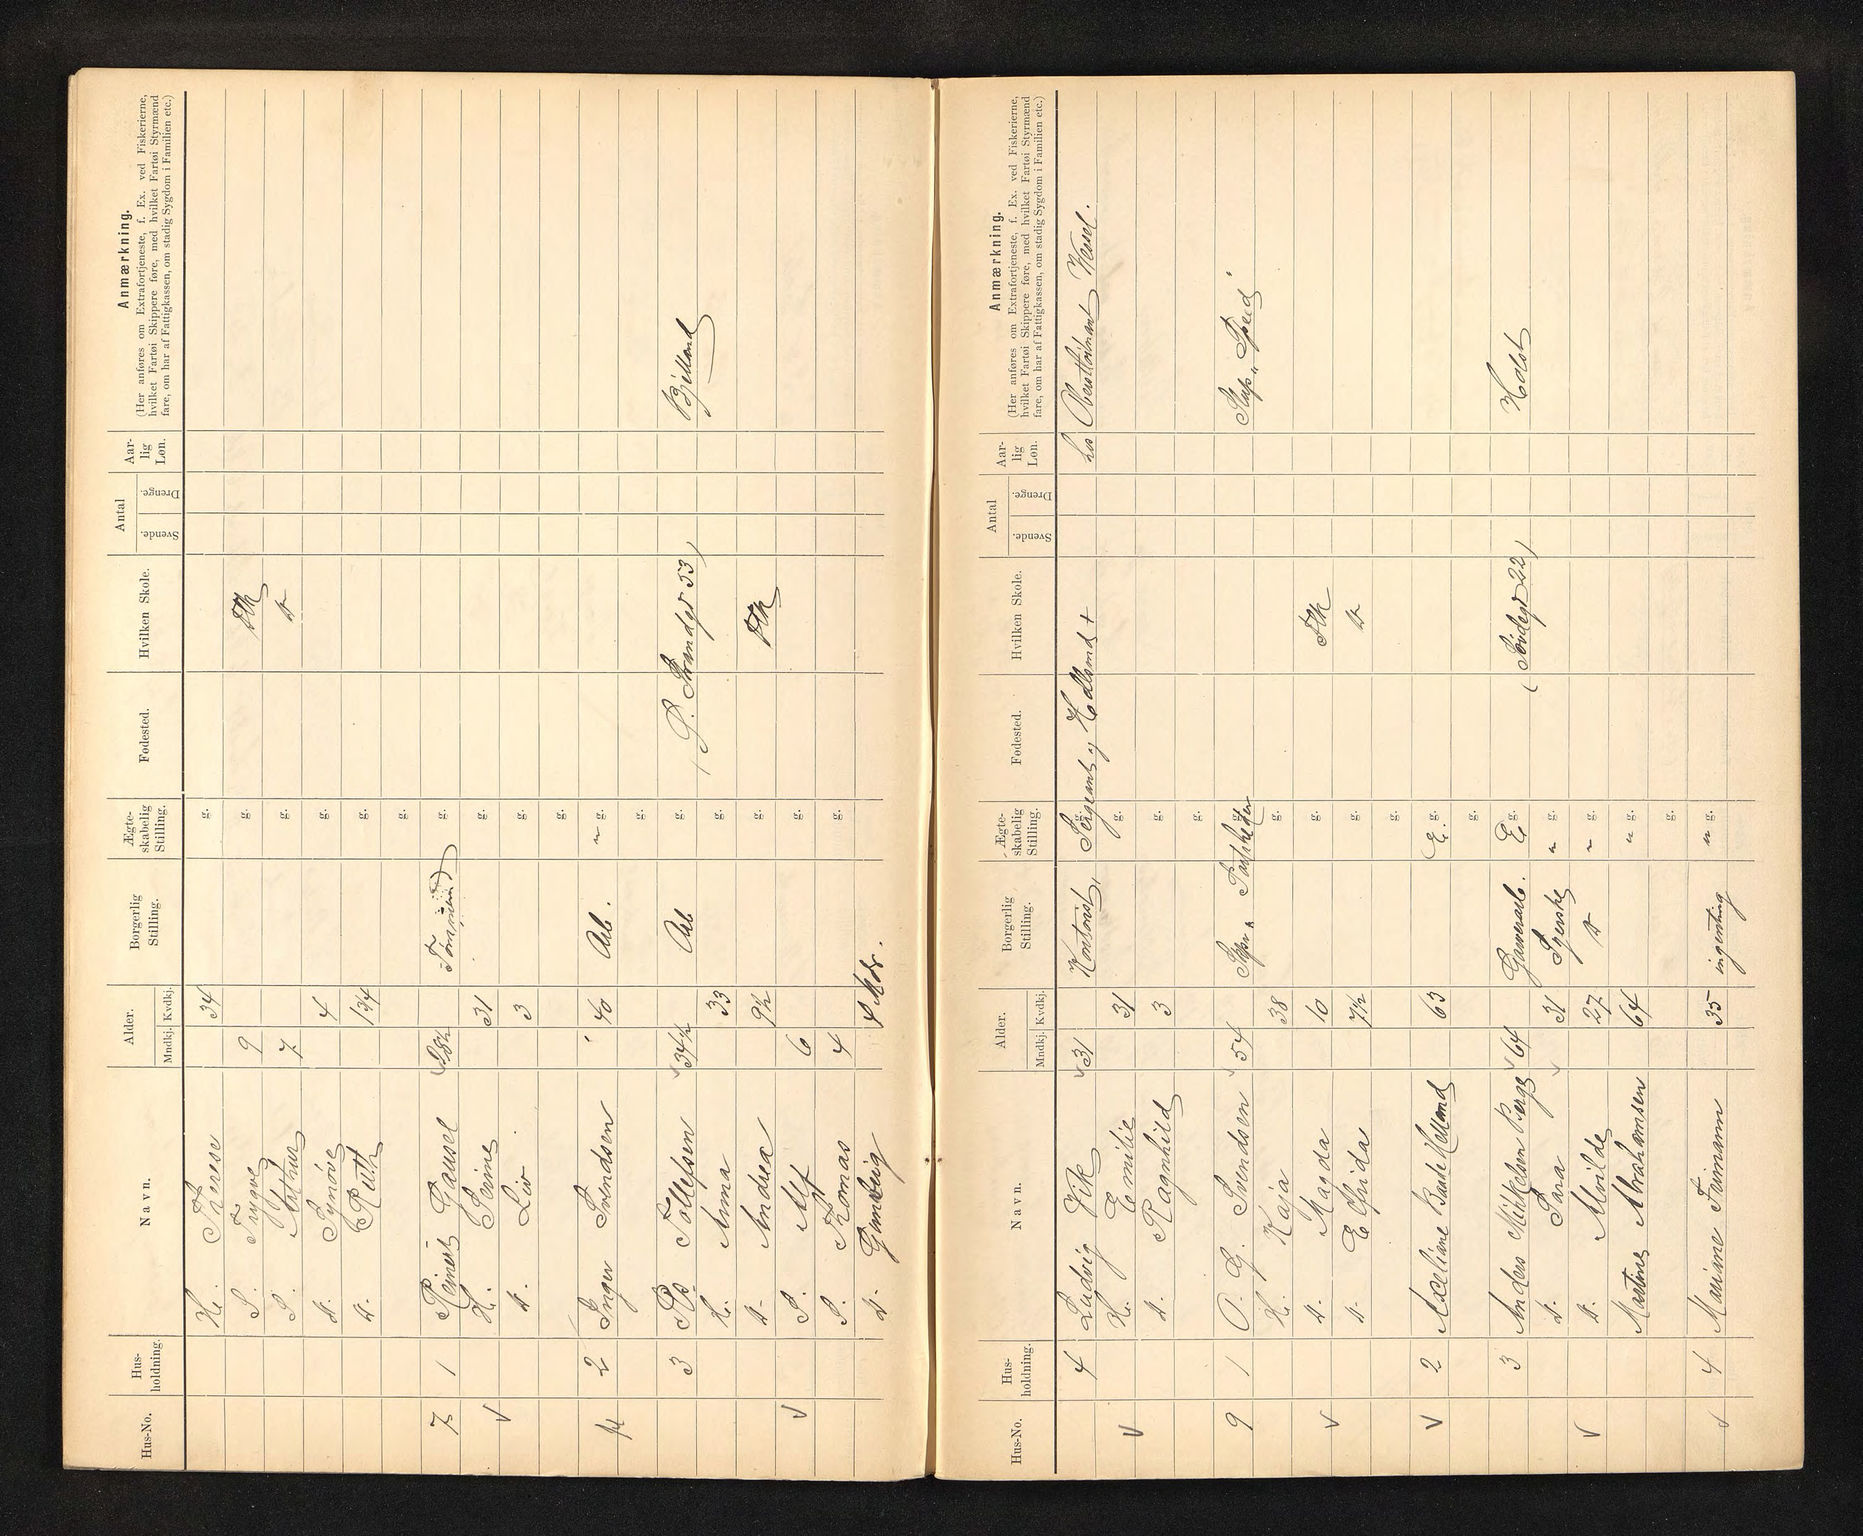 Hus-No. Hus-holdning. Navn. Alder. Mndkj. Kvdkj. Borgerlig Stilling. Ægte-skabelig Stilling. Fødested. Hvilken Skole. Antal Svende. Drenge. Aar-lig Løn. Anmærkning.
(Her anføres om Extrafortjeneste, f. Ex. ved Fiskerierne,
hvilket Fartøi Skippere føre, med hvilket Fartøi Styrmænd
fare, om har af Fattigkassen, om stadig Sygdom i Familien etc.)
H. Therese 34 g.
S. Trygve 9 g. Flk
S. Arthur 7 g. "
d. Synøve 4 g.
d. Ruth 1 3/4 g.
g.
7 1 Reinert Gausel 28½ Tømmerm g.
H. Serine 31 g.
d. Liv 3 g.
g.
2 Inger Svendsen 40 Arb. " g.
g.
3 Tollefsen 34½ Arb g. (S. Strandgd 53) Bjelland
H. Anna 33 g.
d. Andrea 9½ g. Flk
S. Alf 6 g.
S. Thomas 4
d. Gundvig 4 Mdr.
Hus-No. Hus-holdning. Navn. Alder. Mndkj. Kvdkj. Borgerlig Stilling. Ægte-skabelig Stilling. Fødested. Hvilken Skole. Antal Svende. Drenge. Aar-lig Løn. Anmærkning.
(Her anføres om Extrafortjeneste, f. Ex. ved Fiskerierne,
hvilket Fartøi Skippere føre, med hvilket Fartøi Styrmænd
fare, om har af Fattigkassen, om stadig Sygdom i Familien etc.)
4 Ludvig Vik 31 Kontorist, Sergeant g. hos Oberstløitnant Wessel.
H. Emilie 31 g.
d. Ragnhild 3 g.
g.
9 1 O. G. Svendsen 54 g. Slup "Sped"
H. Kaja 38 g.
d. Magda 10 g. Flk
d. Elfrida 7½ g. "
g.
2 Axeliane Baade Helland 63 E. g.
g.
3 Anders Mikkelsen Berge 64 Garverarb. E g. (Søvdegd 22) Holst
d. Sara 31 Syerske " g.
d. Alvilde 27 " " g.
Martine Abrahamsen 64 " g.
g.
4 Mariane Tuimann 35 ingenting " g.